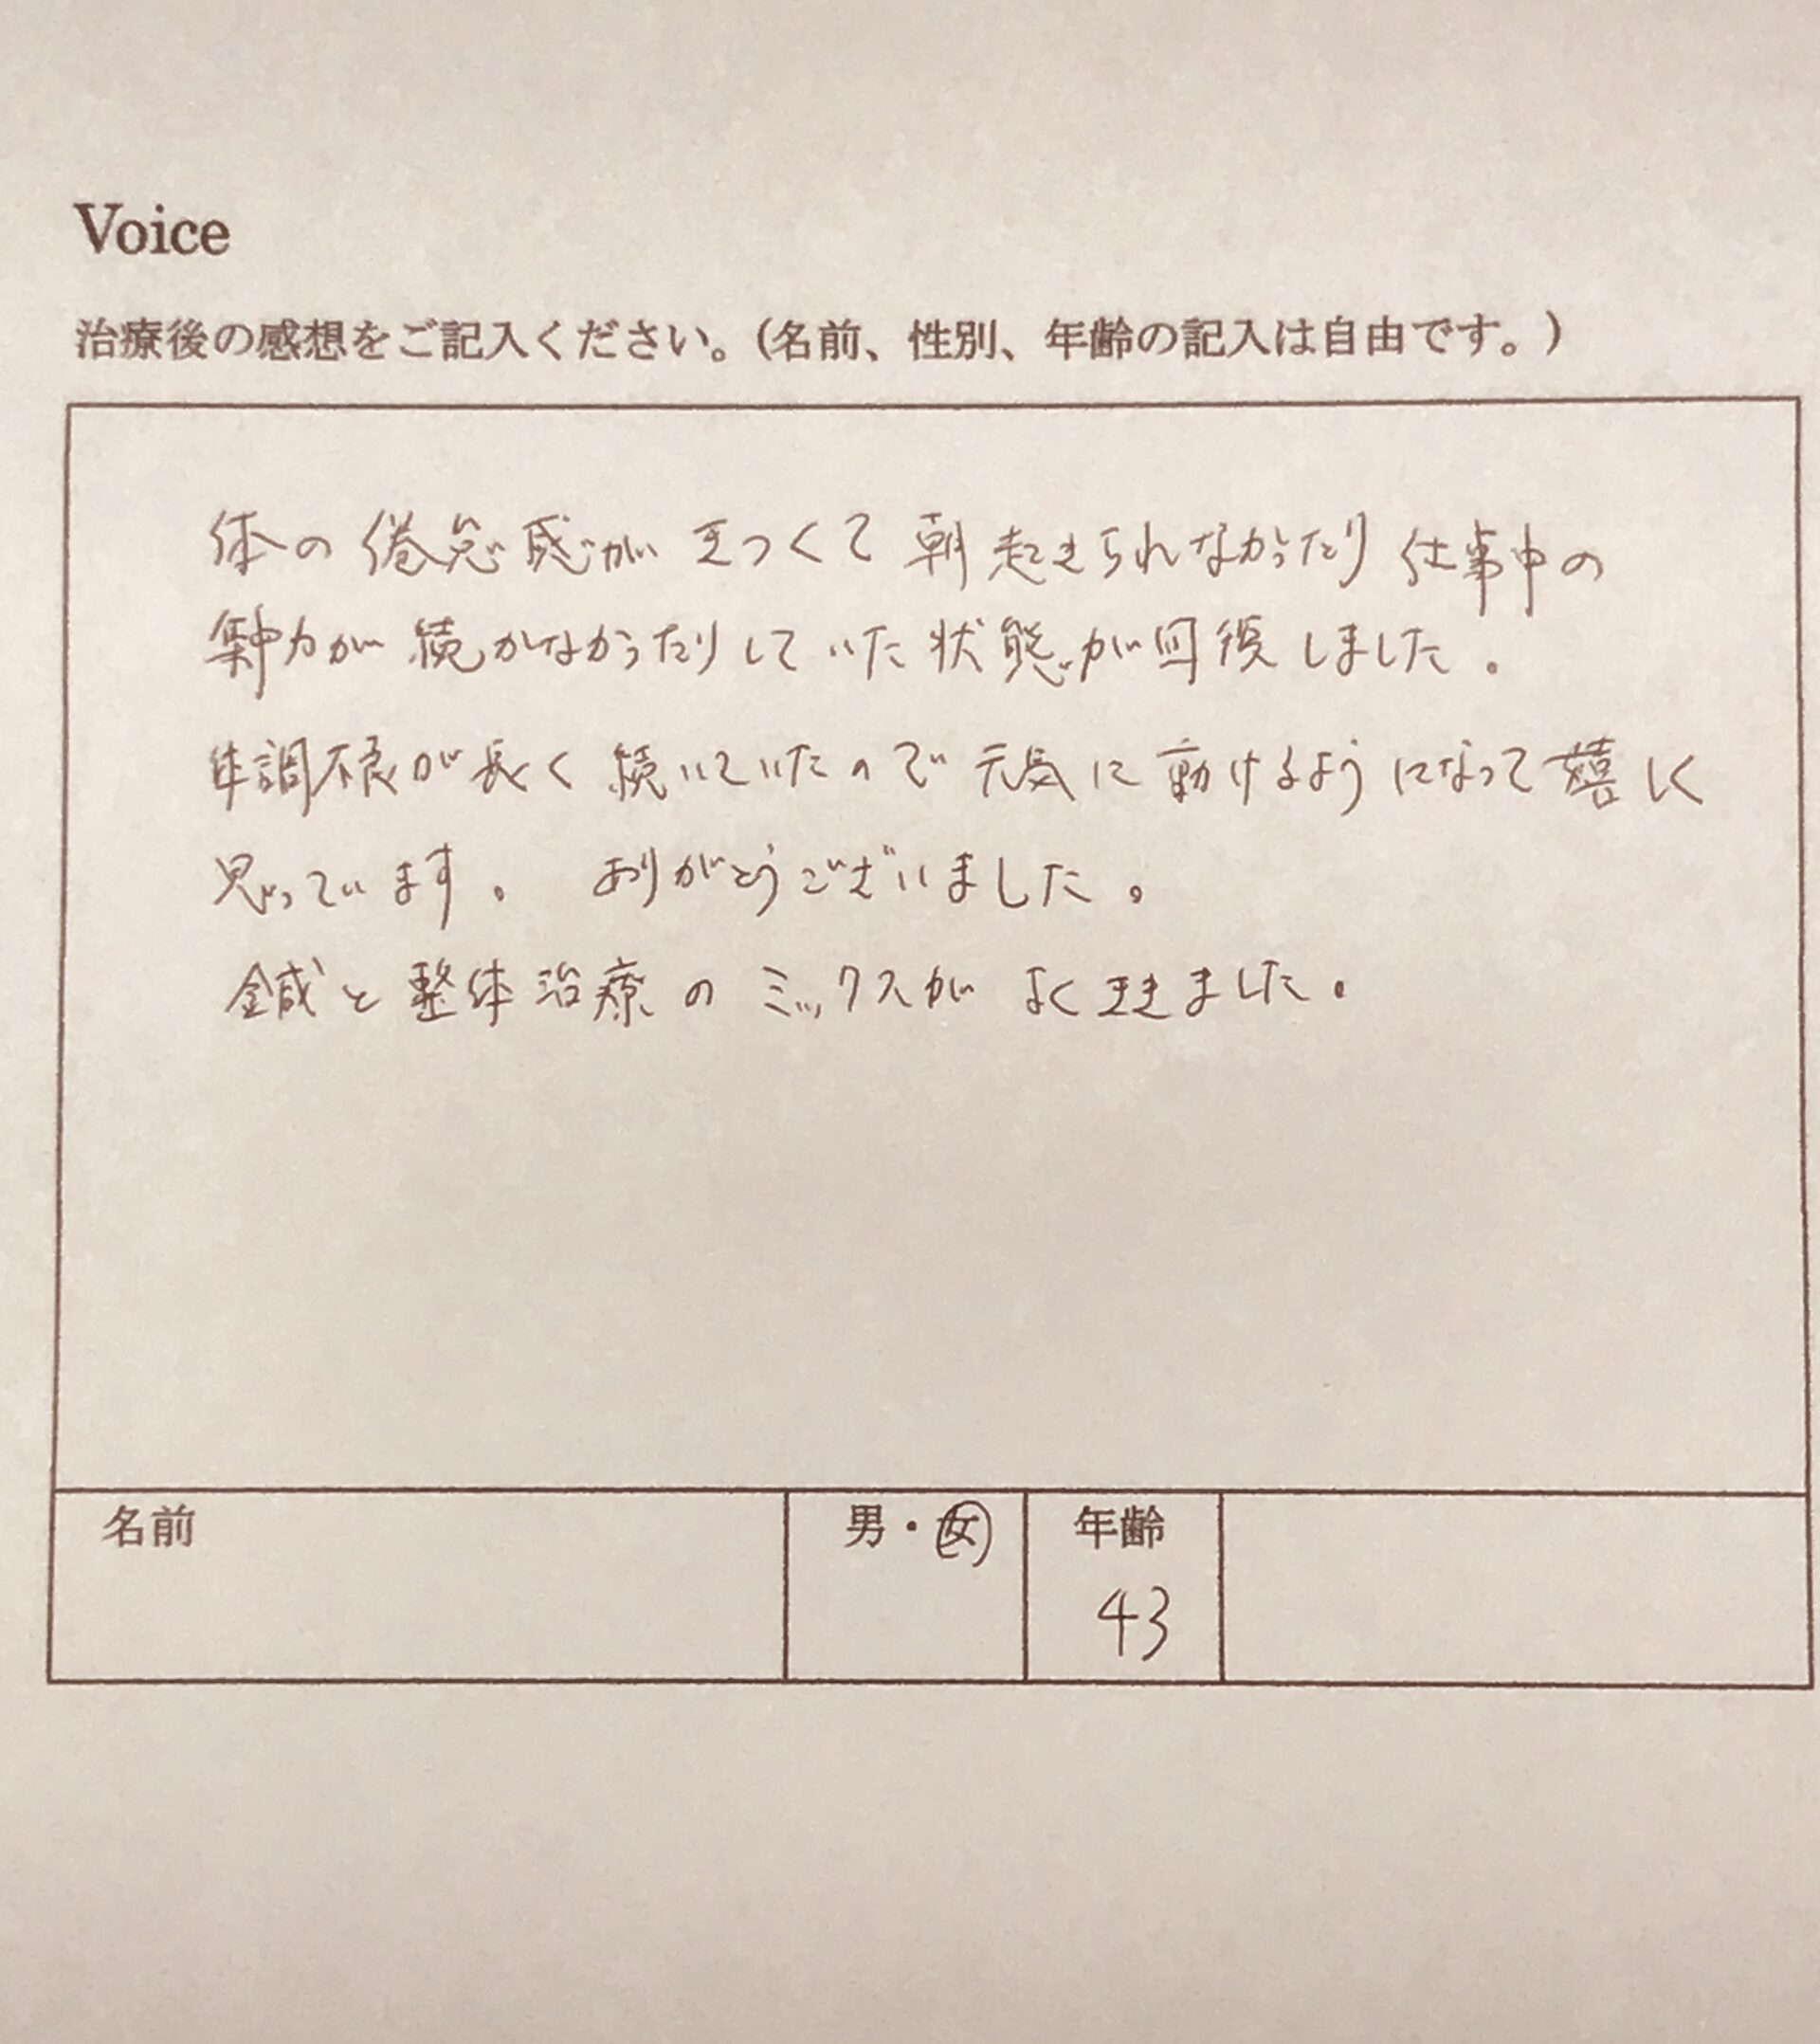 Voice
治療後の感想をご記入ください。(名前、性別、年齢の記入は自由です。)
体の倦怠感がきつくて朝起きられなかったり仕事中の
集中力が続かなかったりしていた状態が回復しました。
体調不良が長く続いていたので元気に動けるようになって嬉しく
思っています。 ありがとうございました。
鍼と整体治療のミックスがよくききました。
名前 男・女 年齢
43